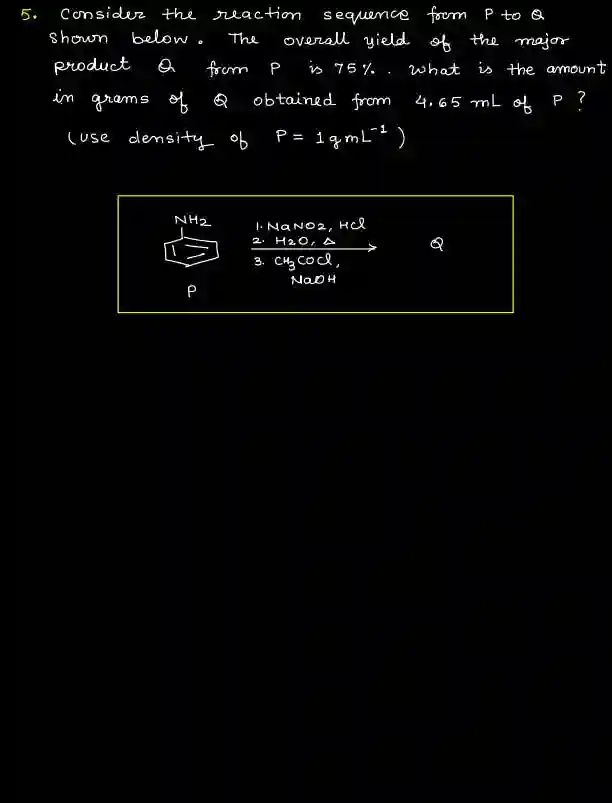 5. Consider the reaction sequence from P to Q
shown below. The overall yield of the major
product Q from P is 75%. What is the amount
in grams of Q obtained from 4.65 mL of P ?
(use density of P = 1 g mL⁻¹ )
NH2
1. NaNO2, HCl
2. H2O, Δ
3. CH3COCl,
NaOH
Q
P